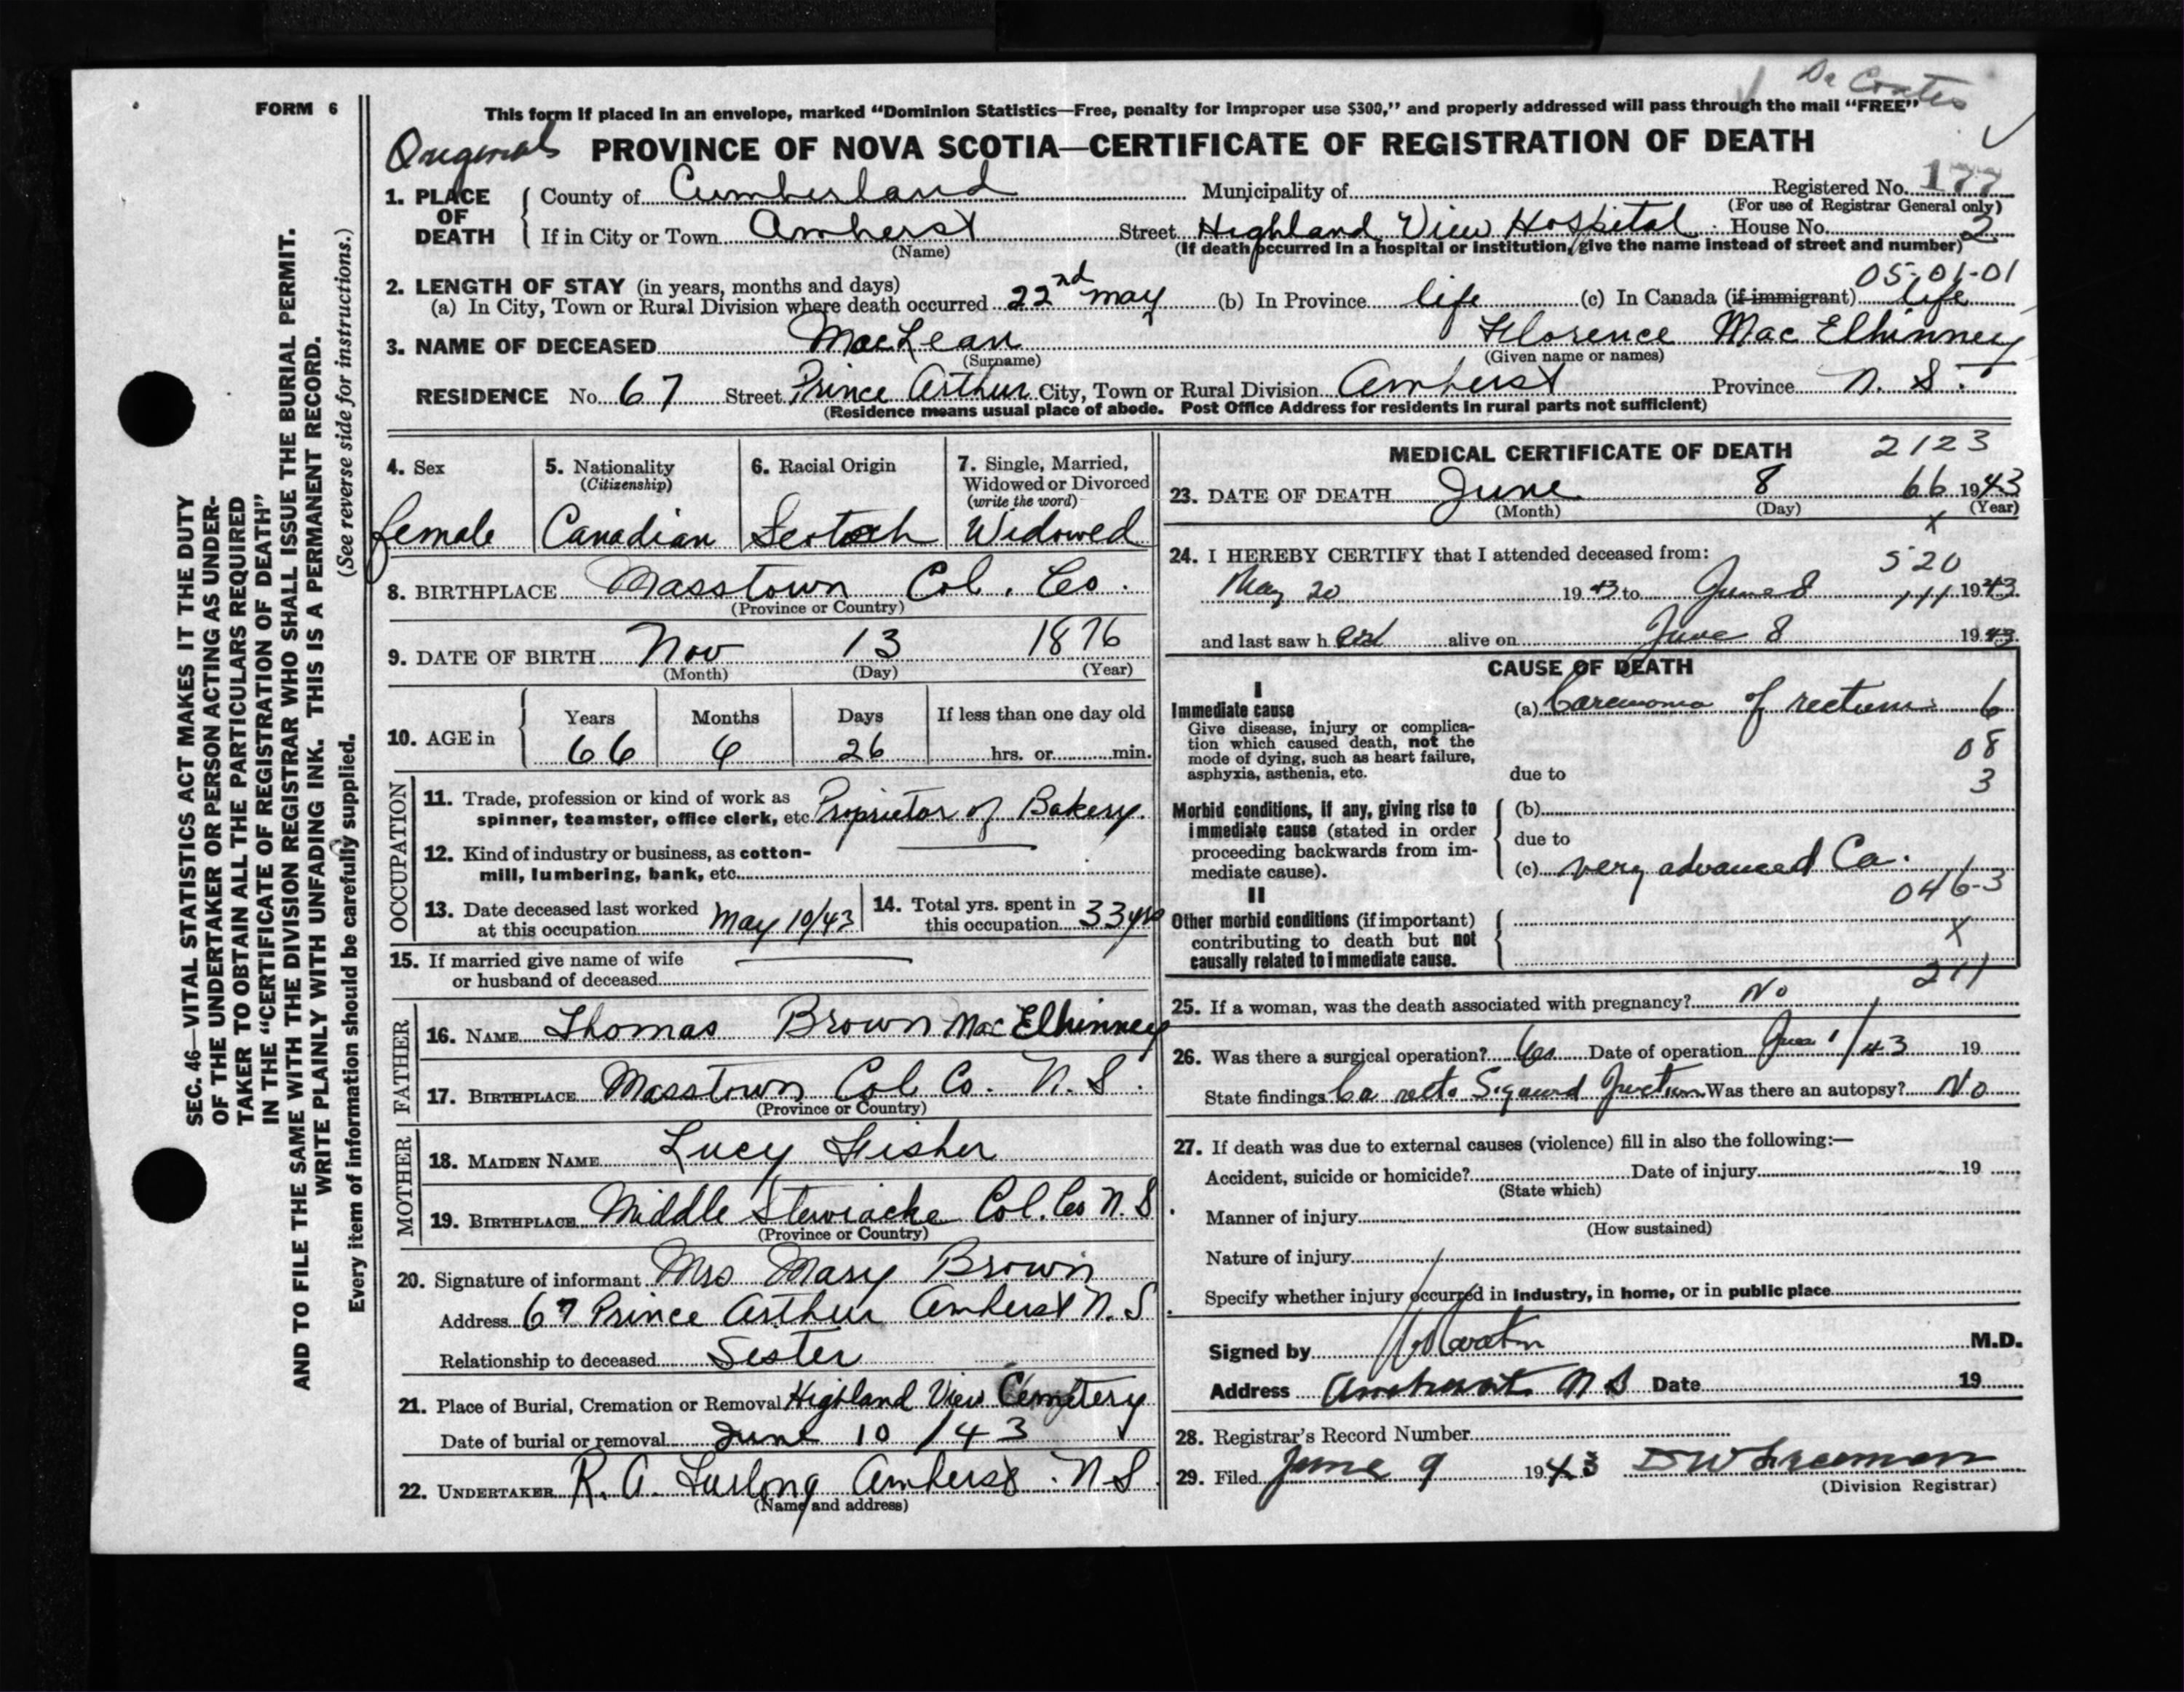 Dr Coates
FORM 6
This form if placed in an envelope, marked “Dominion Statistics—Free, penalty for improper use $300,” and properly addressed will pass through the mail “FREE”
Original PROVINCE OF NOVA SCOTIA—CERTIFICATE OF REGISTRATION OF DEATH
1. PLACE OF DEATH { County of Cumberland Municipality of Registered No. 177
(For use of Registrar General only)
If in City or Town Amherst Street Highland View Hospital House No. 2
(Name) (If death occurred in a hospital or institution, give the name instead of street and number)
05-01-01
2. LENGTH OF STAY (in years, months and days)
(a) In City, Town or Rural Division where death occurred 22nd May (b) In Province life (c) In Canada (if immigrant) life
3. NAME OF DECEASED MacLean Florence MacElhinney
(Surname) (Given name or names)
RESIDENCE No. 67 Street Prince Arthur City, Town or Rural Division Amherst Province N. S.
(Residence means usual place of abode. Post Office Address for residents in rural parts not sufficient)
4. Sex 5. Nationality (Citizenship) 6. Racial Origin 7. Single, Married, Widowed or Divorced (write the word)
female Canadian Scotch Widowed
8. BIRTHPLACE Masstown Col. Co.
(Province or Country)
9. DATE OF BIRTH Nov 13 1876
(Month) (Day) (Year)
10. AGE in { Years Months Days If less than one day old
66 6 26 hrs. or min.
OCCUPATION
11. Trade, profession or kind of work as spinner, teamster, office clerk, etc. Proprietor of Bakery.
12. Kind of industry or business, as cotton-mill, lumbering, bank, etc.
13. Date deceased last worked at this occupation May 10/43 14. Total yrs. spent in this occupation 33 yrs
15. If married give name of wife or husband of deceased
FATHER
16. NAME Thomas Brown MacElhinney
17. BIRTHPLACE Masstown Col Co. N. S.
(Province or Country)
MOTHER
18. MAIDEN NAME Lucy Fisher
19. BIRTHPLACE Middle Stewiacke Col. Co N. S.
(Province or Country)
20. Signature of informant Mrs Mary Brown
Address 67 Prince Arthur Amherst N. S.
Relationship to deceased Sister
21. Place of Burial, Cremation or Removal Highland View Cemetery
Date of burial or removal June 10/43
22. UNDERTAKER R. A. Furlong Amherst N S
(Name and address)
MEDICAL CERTIFICATE OF DEATH 2123
23. DATE OF DEATH June 8 66 1943
(Month) (Day) (Year)
x
24. I HEREBY CERTIFY that I attended deceased from: 520
May 20 1943 to June 8 111 1943
and last saw her alive on June 8 1943
CAUSE OF DEATH
I
Immediate cause (a) Carcinoma of rectum 6
Give disease, injury or complication which caused death, not the mode of dying, such as heart failure, asphyxia, asthenia, etc.
08
due to 3
Morbid conditions, if any, giving rise to immediate cause (stated in order proceeding backwards from immediate cause). { (b)
due to
(c) very advanced Ca.
046-3
II
Other morbid conditions (if important) contributing to death but not causally related to immediate cause. {
X
211
25. If a woman, was the death associated with pregnancy? No
26. Was there a surgical operation? Yes Date of operation June 1/43 19
State findings Ca recto Sigmoid Junction Was there an autopsy? No
27. If death was due to external causes (violence) fill in also the following:—
Accident, suicide or homicide? Date of injury 19
(State which)
Manner of injury
(How sustained)
Nature of injury
Specify whether injury occurred in industry, in home, or in public place
Signed by M.D.
Address Amherst N S Date 19
28. Registrar's Record Number
29. Filed June 9 1943 D W Freeman
(Division Registrar)
SEC. 46—VITAL STATISTICS ACT MAKES IT THE DUTY
OF THE UNDERTAKER OR PERSON ACTING AS UNDER-
TAKER TO OBTAIN ALL THE PARTICULARS REQUIRED
IN THE “CERTIFICATE OF REGISTRATION OF DEATH”
AND TO FILE THE SAME WITH THE DIVISION REGISTRAR WHO SHALL ISSUE THE BURIAL PERMIT.
WRITE PLAINLY WITH UNFADING INK. THIS IS A PERMANENT RECORD.
Every item of information should be carefully supplied. (See reverse side for instructions.)